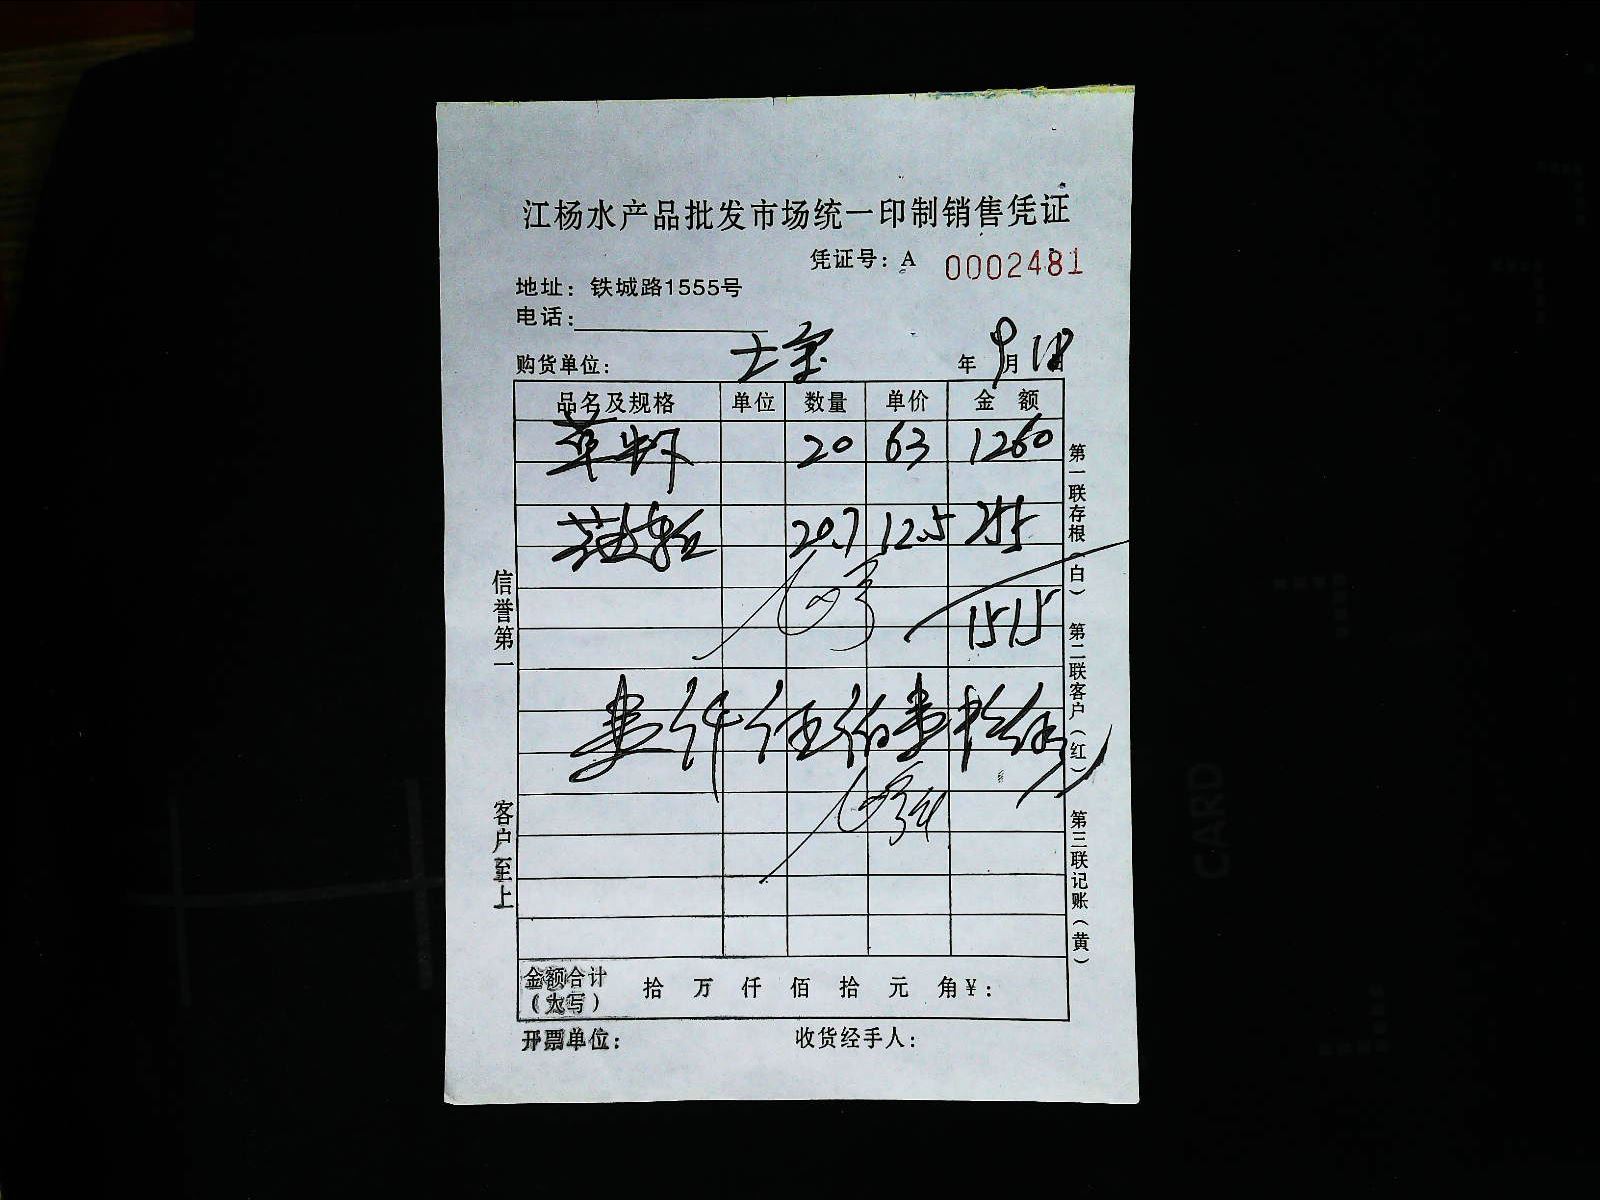 江杨水产品批发市场统一印制销售凭证
凭证号：A 0002481
地址：铁城路1555号
电话：
购货单位： 年 9月18日
品名及规格 单位 数量 单价 金额
草虾 20 63 1260
20.7 12.5 255
1515
壹仟伍佰壹拾伍
金额合计（大写） 拾 万 仟 佰 拾 元 角 ¥：
开票单位： 收货经手人：
信誉第一
客户至上
第一联存根（白）
第二联客户（红）
第三联记账（黄）